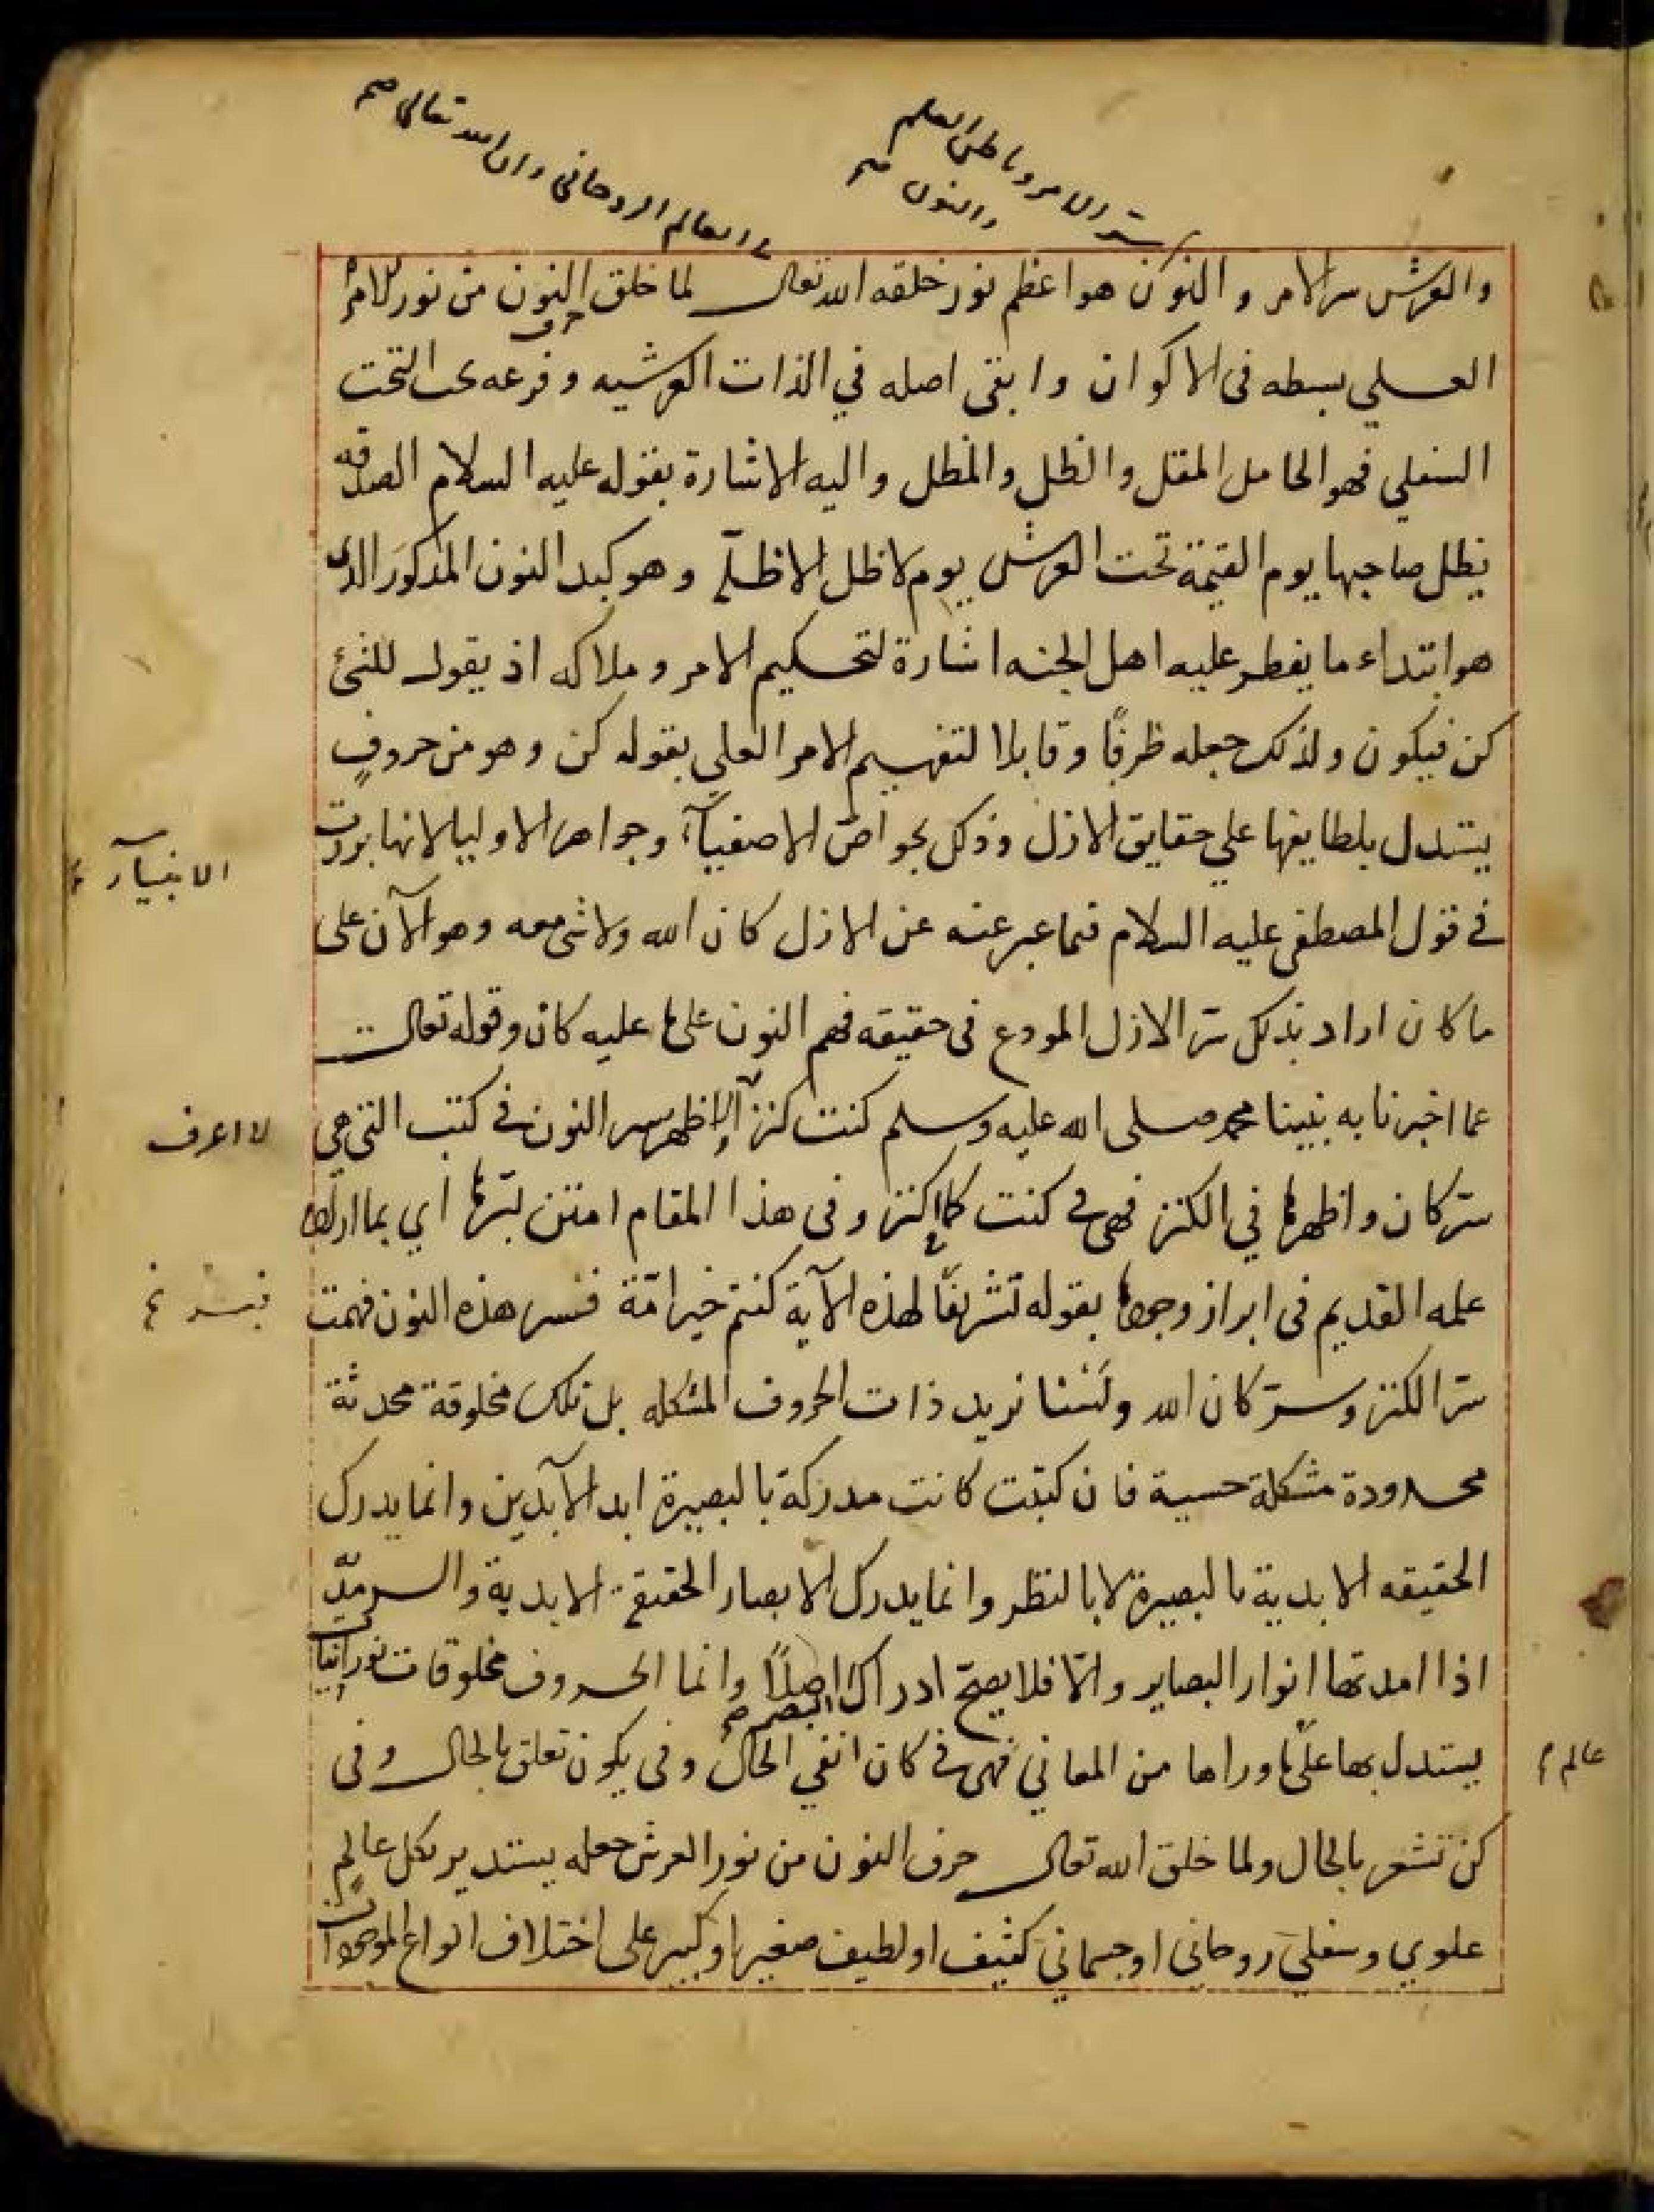 سر الامر وباطن العلم
والنون صح
في العالم الروحاني وان الله تعالى صح
والعرش سر الامر والنون هو اعظم نور خلقه الله تعالى لما خلق النون من نور الامر
حرف
العلي بسطه في الاكوان وابقى اصله في الذات العرشيه وفرعه تحت التحت
السفلي فهو الحامل المقل والظل والمظل واليه الاشارة بقوله عليه السلام الصدقه
يظل صاحبها يوم القيمة تحت العرش يوم لا ظل الا ظله وهو كبد النون المذكور الذي
هو ابتداء ما يفطر عليه اهل الجنه اشارة لتحكيم الامر وملاكه اذ يقول للشئ
كن فيكون ولذلك جعله ظرفًا وقابلا لتفهيم الامر العلي بقوله كن وهو من حروفٍ
يستدل بلطايفها علي حقايق الازل وذلك بخواصّ الاصفيآء وجواهر الاوليا لانها بدرت
الانبيآء
في قول المصطفى عليه السلام فيما عبر عنه عن الازل كان الله ولا شئ معه وهو الآن على
ما كان اراد بذلك سرّ الازل المودع في حقيقه فهم النون على ما عليه كان وقوله تعالى
عما اخبرنا به نبينا محمد صلى الله عليه وسلم كنت كنزًا لا اظهر سر النون في كنت التي هي
لا اعرف
سرّ كان واظهرها في الكنز فهي في كنت كما كنز وفي هذا المقام امتن بسرّها اي بما ادركه
علمه القديم في ابراز وجودها بقوله تشريفًا لهذه الآية كنتم خير امّة فسر هذه النون فهمت
فبسر خ
سرّ الكنز وسرّ كان الله ولسنا نريد ذات الحروف المشكله بل تلك مخلوقة محدثة
محدودة مشكلة حسية فان كتبت كانت مدركة بالبصيرة ابد الآبدين وانما يدرك
الحقيقه الابدية بالبصيرة لا بالنظر وانما يدرك الابصار الحقيقة الابدية والسرمديّه
اذا امدتها انوار البصاير والّا فلا يصحّ ادراك اصلًا وانما الحروف مخلوقات نورانيات
البصر صح
يستدل بها على ما وراها من المعاني فهي في كان انفي الحال وفي يكون تعلق بالحال وفي
عالم
كن تشعر بالحال ولما خلق الله تعالى حرف النون من نور العرش جعله يستدير بكل عالم
علوي وسفلي روحاني او جسماني كثيف او لطيف صغير او كبير على اختلاف انواع الموجودات